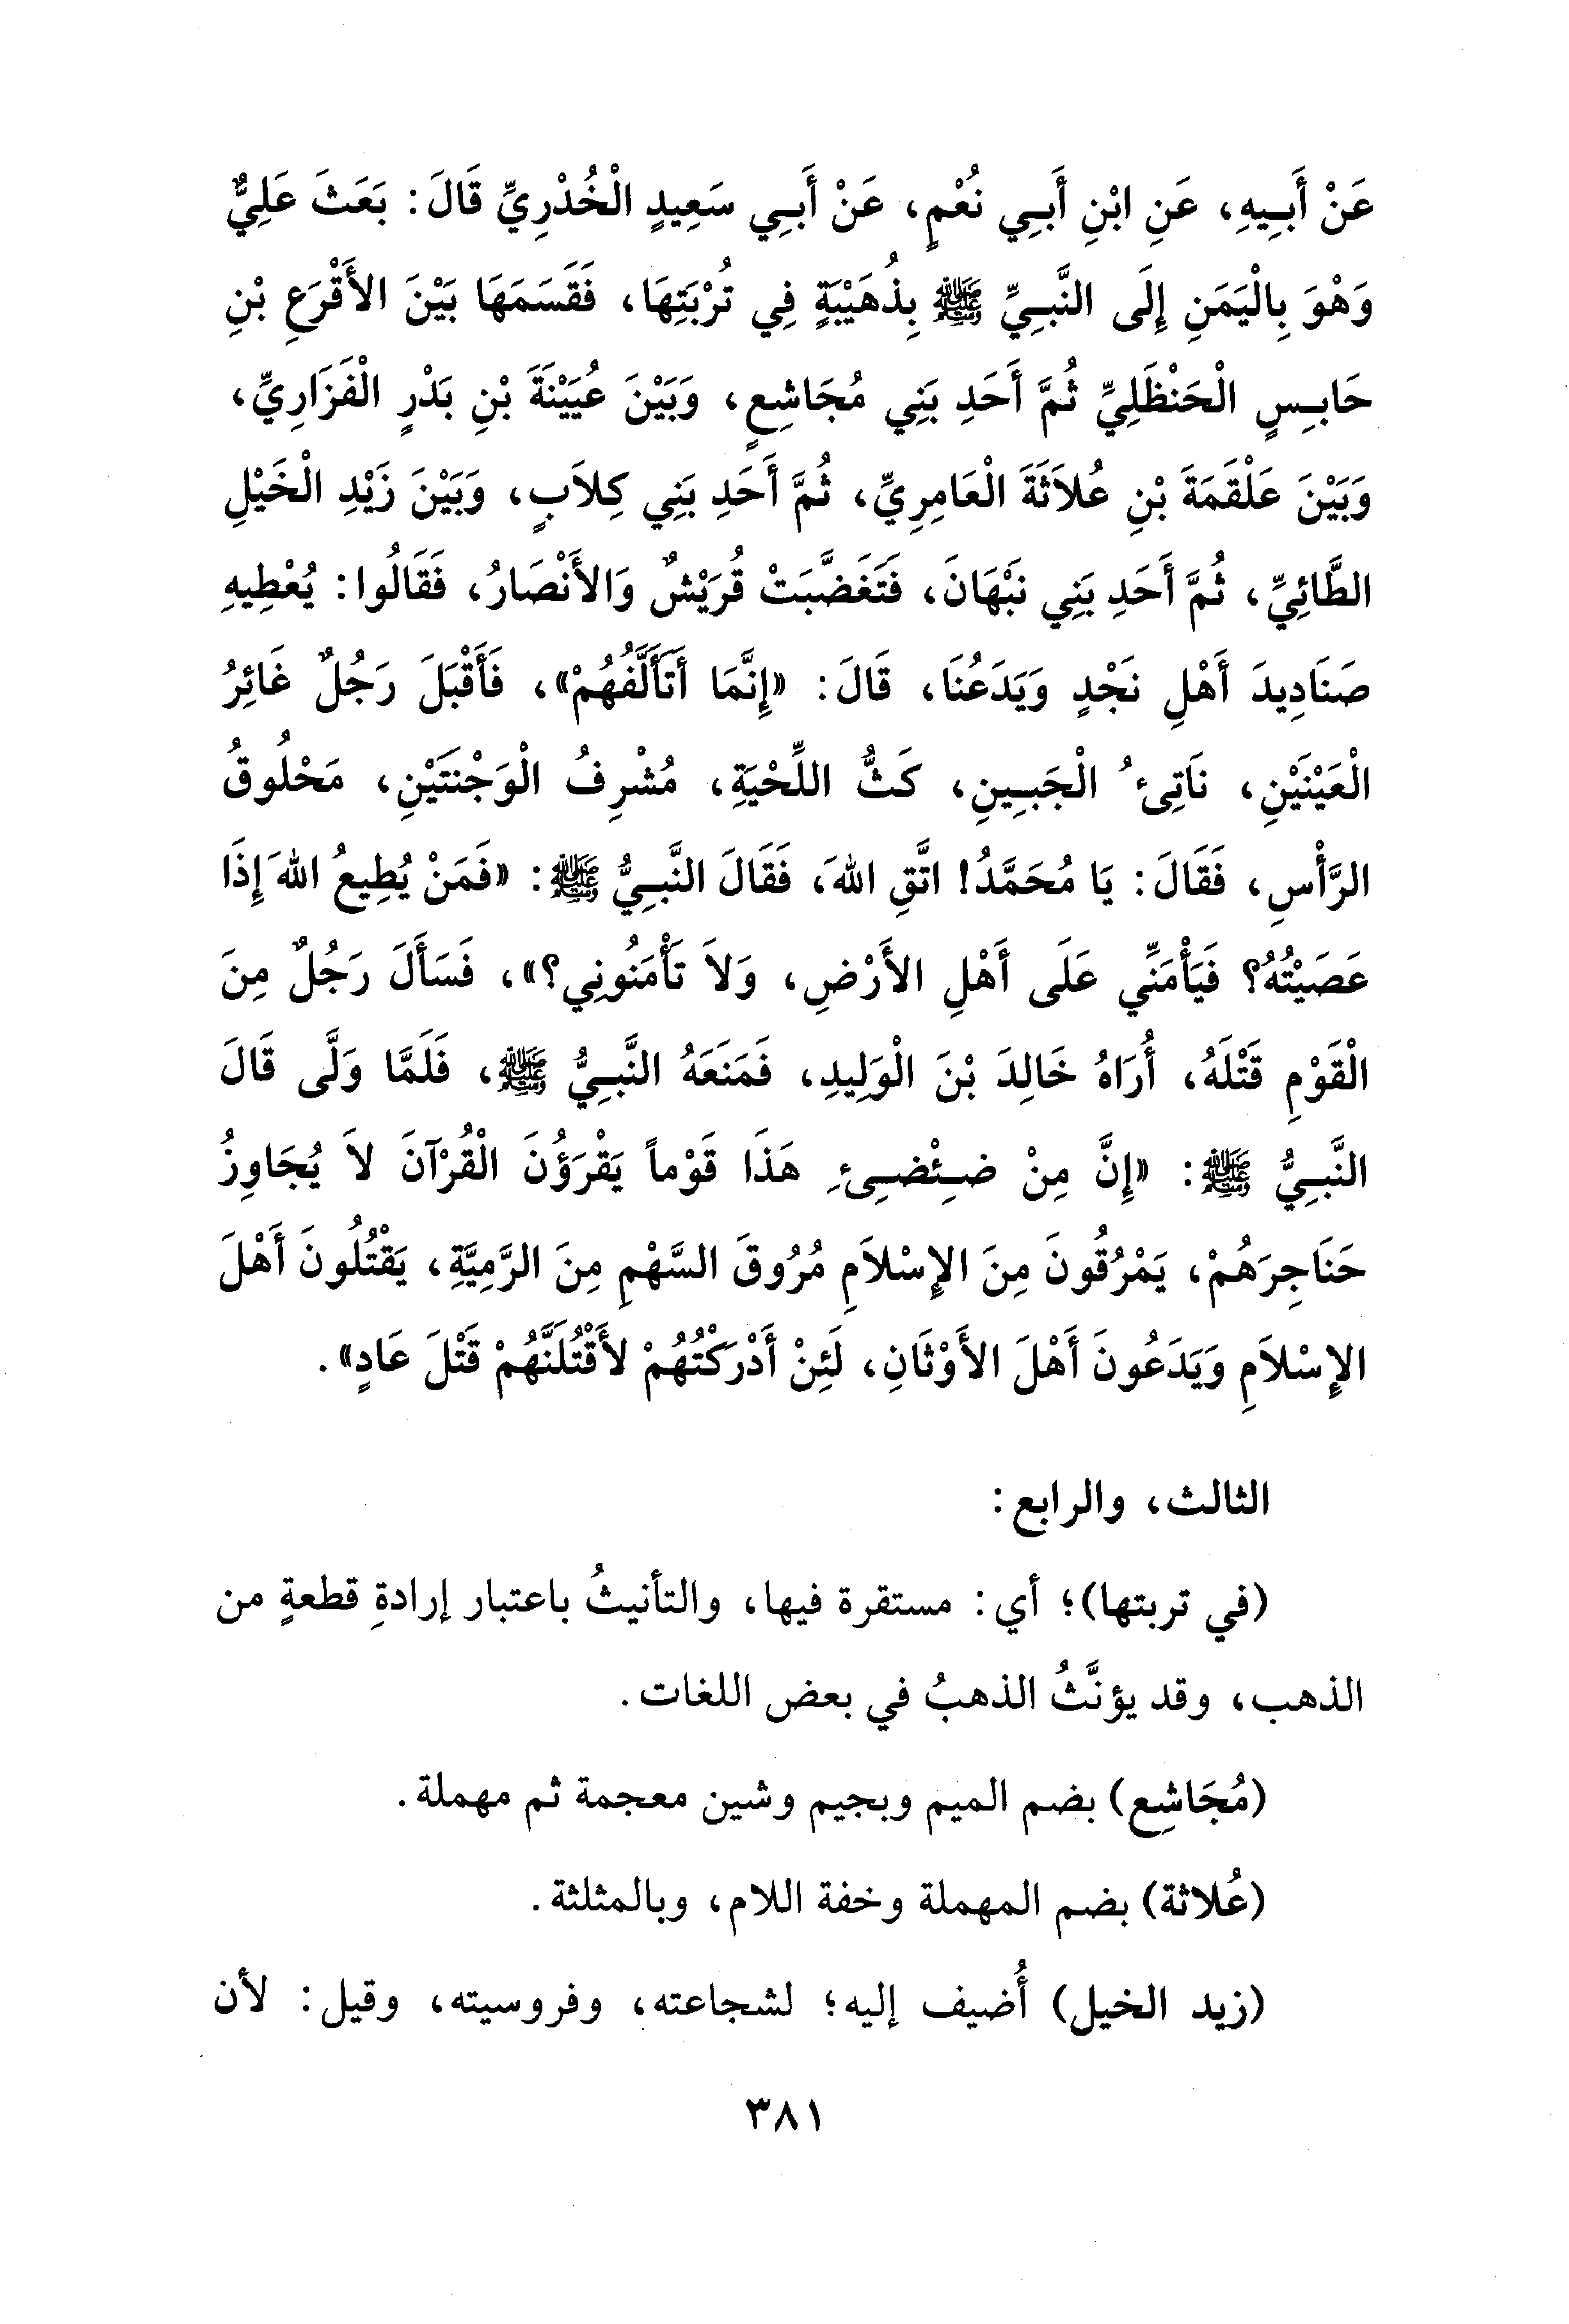 عَنْ أَبِيهِ، عَنِ ابْنِ أَبِي نُعْمٍ، عَنْ أَبِي سَعِيدٍ الْخُدْرِيِّ قَالَ: بَعَثَ عَلِيٌّ
وَهْوَ بِالْيَمَنِ إِلَى النَّبِيِّ ﷺ بِذُهَيْبَةٍ فِي تُرْبَتِهَا، فَقَسَمَهَا بَيْنَ الأَقْرَعِ بْنِ
حَابِسٍ الْحَنْظَلِيِّ ثُمَّ أَحَدِ بَنِي مُجَاشِعٍ، وَبَيْنَ عُيَيْنَةَ بْنِ بَدْرٍ الْفَزَارِيِّ،
وَبَيْنَ عَلْقَمَةَ بْنِ عُلاَثَةَ الْعَامِرِيِّ، ثُمَّ أَحَدِ بَنِي كِلاَبٍ، وَبَيْنَ زَيْدِ الْخَيْلِ
الطَّائِيِّ، ثُمَّ أَحَدِ بَنِي نَبْهَانَ، فَتَغَضَّبَتْ قُرَيْشٌ وَالأَنْصَارُ، فَقَالُوا: يُعْطِيهِ
صَنَادِيدَ أَهْلِ نَجْدٍ وَيَدَعُنَا، قَالَ: «إِنَّمَا أَتَأَلَّفُهُمْ»، فَأَقْبَلَ رَجُلٌ غَائِرُ
الْعَيْنَيْنِ، نَاتِىءُ الْجَبِينِ، كَثُّ اللِّحْيَةِ، مُشْرِفُ الْوَجْنَتَيْنِ، مَحْلُوقُ
الرَّأْسِ، فَقَالَ: يَا مُحَمَّدُ! اتَّقِ اللهَ، فَقَالَ النَّبِيُّ ﷺ: «فَمَنْ يُطِيعُ اللهَ إِذَا
عَصَيْتُهُ؟ فَيَأْمَنِّي عَلَى أَهْلِ الأَرْضِ، وَلاَ تَأْمَنُونِي؟»، فَسَأَلَ رَجُلٌ مِنَ
الْقَوْمِ قَتْلَهُ، أُرَاهُ خَالِدَ بْنَ الْوَلِيدِ، فَمَنَعَهُ النَّبِيُّ ﷺ، فَلَمَّا وَلَّى قَالَ
النَّبِيُّ ﷺ: «إِنَّ مِنْ ضِئْضِىءِ هَذَا قَوْماً يَقْرَؤُنَ الْقُرْآنَ لاَ يُجَاوِزُ
حَنَاجِرَهُمْ، يَمْرُقُونَ مِنَ الإِسْلاَمِ مُرُوقَ السَّهْمِ مِنَ الرَّمِيَّةِ، يَقْتُلُونَ أَهْلَ
الإِسْلاَمِ وَيَدَعُونَ أَهْلَ الأَوْثَانِ، لَئِنْ أَدْرَكْتُهُمْ لأَقْتُلَنَّهُمْ قَتْلَ عَادٍ».
الثالث، والرابع:
(في تربتها)؛ أي: مستقرة فيها، والتأنيثُ باعتبار إرادةِ قطعةٍ من
الذهب، وقد يؤنَّثُ الذهبُ في بعض اللغات.
(مُجَاشِع) بضم الميم وبجيم وشين معجمة ثم مهملة.
(عُلاثة) بضم المهملة وخفة اللام، وبالمثلثة.
(زيد الخيل) أُضيف إليه؛ لشجاعته، وفروسيته، وقيل: لأن
٣٨١